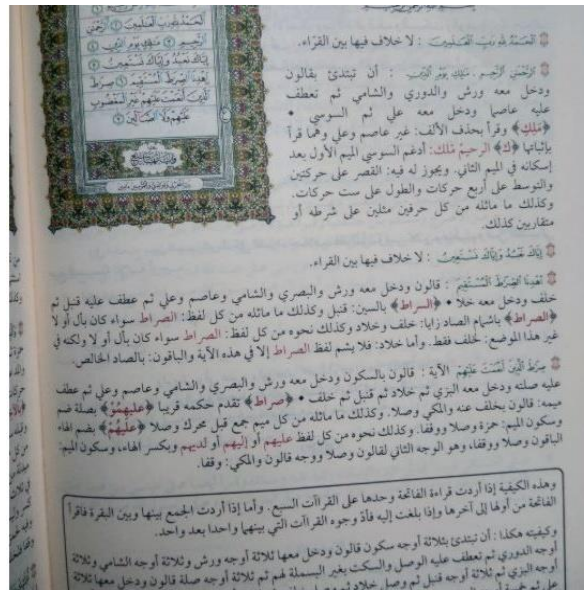 الحمد لله رب العالمين ۝ الرحمن
الرحيم ۝ ملك يوم الدين ۝
إياك نعبد وإياك نستعين ۝
اهدنا الصراط المستقيم ۝ صراط
الذين أنعمت عليهم غير المغضوب
عليهم ولا الضالين ۝
الحمد لله رب العالمين : لا خلاف فيها بين القرّاء.
الرحمن الرحيم ملك يوم الدين : أن تبتدئ بقالون
ودخل معه ورش والدوري والشامي ثم تعطف
عليه عاصما ودخل معه علي ثم السوسي •
﴿مَلِكِ﴾ وقرأ بحذف الألف: غير عاصم وعلي وهما قرآ
بإثباتها ﴿ك﴾ الرحيم مَّلك: أدغم السوسي الميم الأول بعد
إسكانه في الميم الثاني. ويجوز له فيه: القصر على حركتين
والتوسط على أربع حركات والطول على ست حركات.
وكذلك ما ماثله من كل حرفين مثلين على شرطه أو
متقاربين كذلك.
إياك نعبد وإياك نستعين : لا خلاف فيها بين القراء.
اهدنا الصراط المستقيم : قالون ودخل معه ورش والبصري والشامي وعاصم وعلي ثم عطف عليه قنبل ثم
خلف ودخل معه خلا • ﴿السراط﴾ بالسين: قنبل وكذلك ما ماثله من كل لفظ: الصراط سواء كان بأل أو لا
﴿الصراط﴾ بإشمام الصاد زايا: خلف وخلاد وكذلك نحوه من كل لفظ: الصراط سواء كان بأل أو لا ولكنه في
غير هذا الموضع: خلف فقط. وأما خلاد: فلا يشم لفظ الصراط إلا في هذه الآية والباقون: بالصاد الخالص.
صراط الذين أنعمت عليهم الآية : قالون بالسكون ودخل معه ورش والبصري والشامي وعاصم وعلي ثم عطف
عليه صلته ودخل معه البزي ثم خلاد ثم قنبل ثم خلف • ﴿صراط﴾ تقدم حكمه قريبا ﴿عليهمُو﴾ بصلة ضم
ميمه: قالون بخلف عنه والمكي وصلا. وكذلك ما ماثله من كل ميم جمع قبل محرك وصلا ﴿عليهُمْ﴾ بضم الهاء
وسكون الميم: حمزة وصلا ووقفا. وكذلك نحوه من كل لفظ عليهم أو إليهم أو لديهم وبكسر الهاء، وسكون الميم:
الباقون وصلا ووقفا، وهو الوجه الثاني لقالون وصلا ووجه قالون والمكي: وقفا.
وهذه الكيفية إذا أردت قراءة الفاتحة وحدها على القراآت السبع. وأما إذا أردت الجمع بينها وبين البقرة فاقرأ
الفاتحة من أولها إلى آخرها وإذا بلغت إليه فأدّ وجوه القراآت التي بينهما واحدا بعد واحد.
وكيفيته هكذا : أن تبتدئ بثلاثة أوجه سكون قالون ودخل معها ثلاثة أوجه ورش وثلاثة أوجه الشامي وثلاثة
أوجه الدوري ثم تعطف عليه الوصل والسكت بغير البسملة لهم ثم ثلاثة أوجه
أوجه البزي ثم ثلاثة أوجه قنبل ثم وصل خلاد